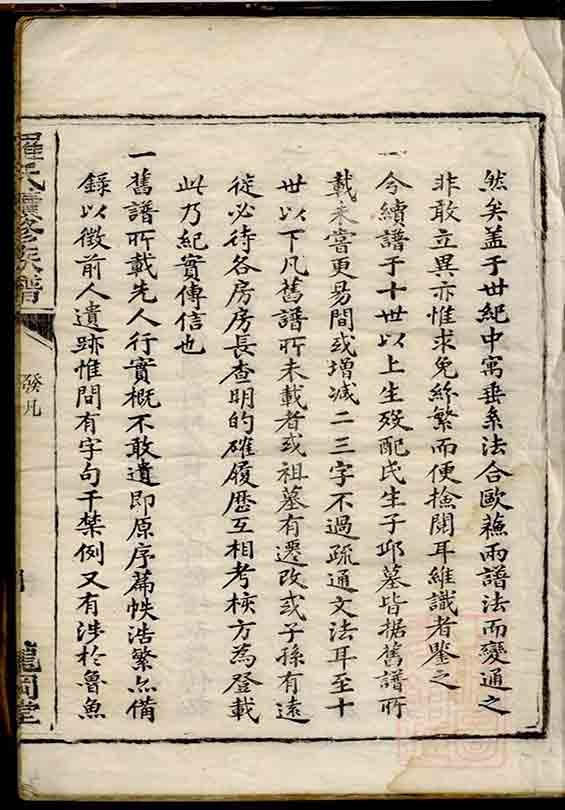 然矣盖于世紀中寓垂系法合歐蘓兩譜法而變通之
非敢立異亦惟求免紛繁而便撿閱耳維識者鑒之
一今續譜于十世以上生殁配氏生子邱墓皆据舊譜所
載未嘗更易間或增减二三字不過疏通文法耳至十
世以下凡舊譜所未載者或祖墓有遷改或子孫有遠
徙必待各房房長查明的確履歷互相考核方為登載
此乃紀實傳信也
一舊譜所載先人行實概不敢遺即原序篇帙浩繁亦備
錄以徵前人遺跡惟間有字句干禁例又有涉於魯魚
羅氏續修族譜
發凡
龍岡堂